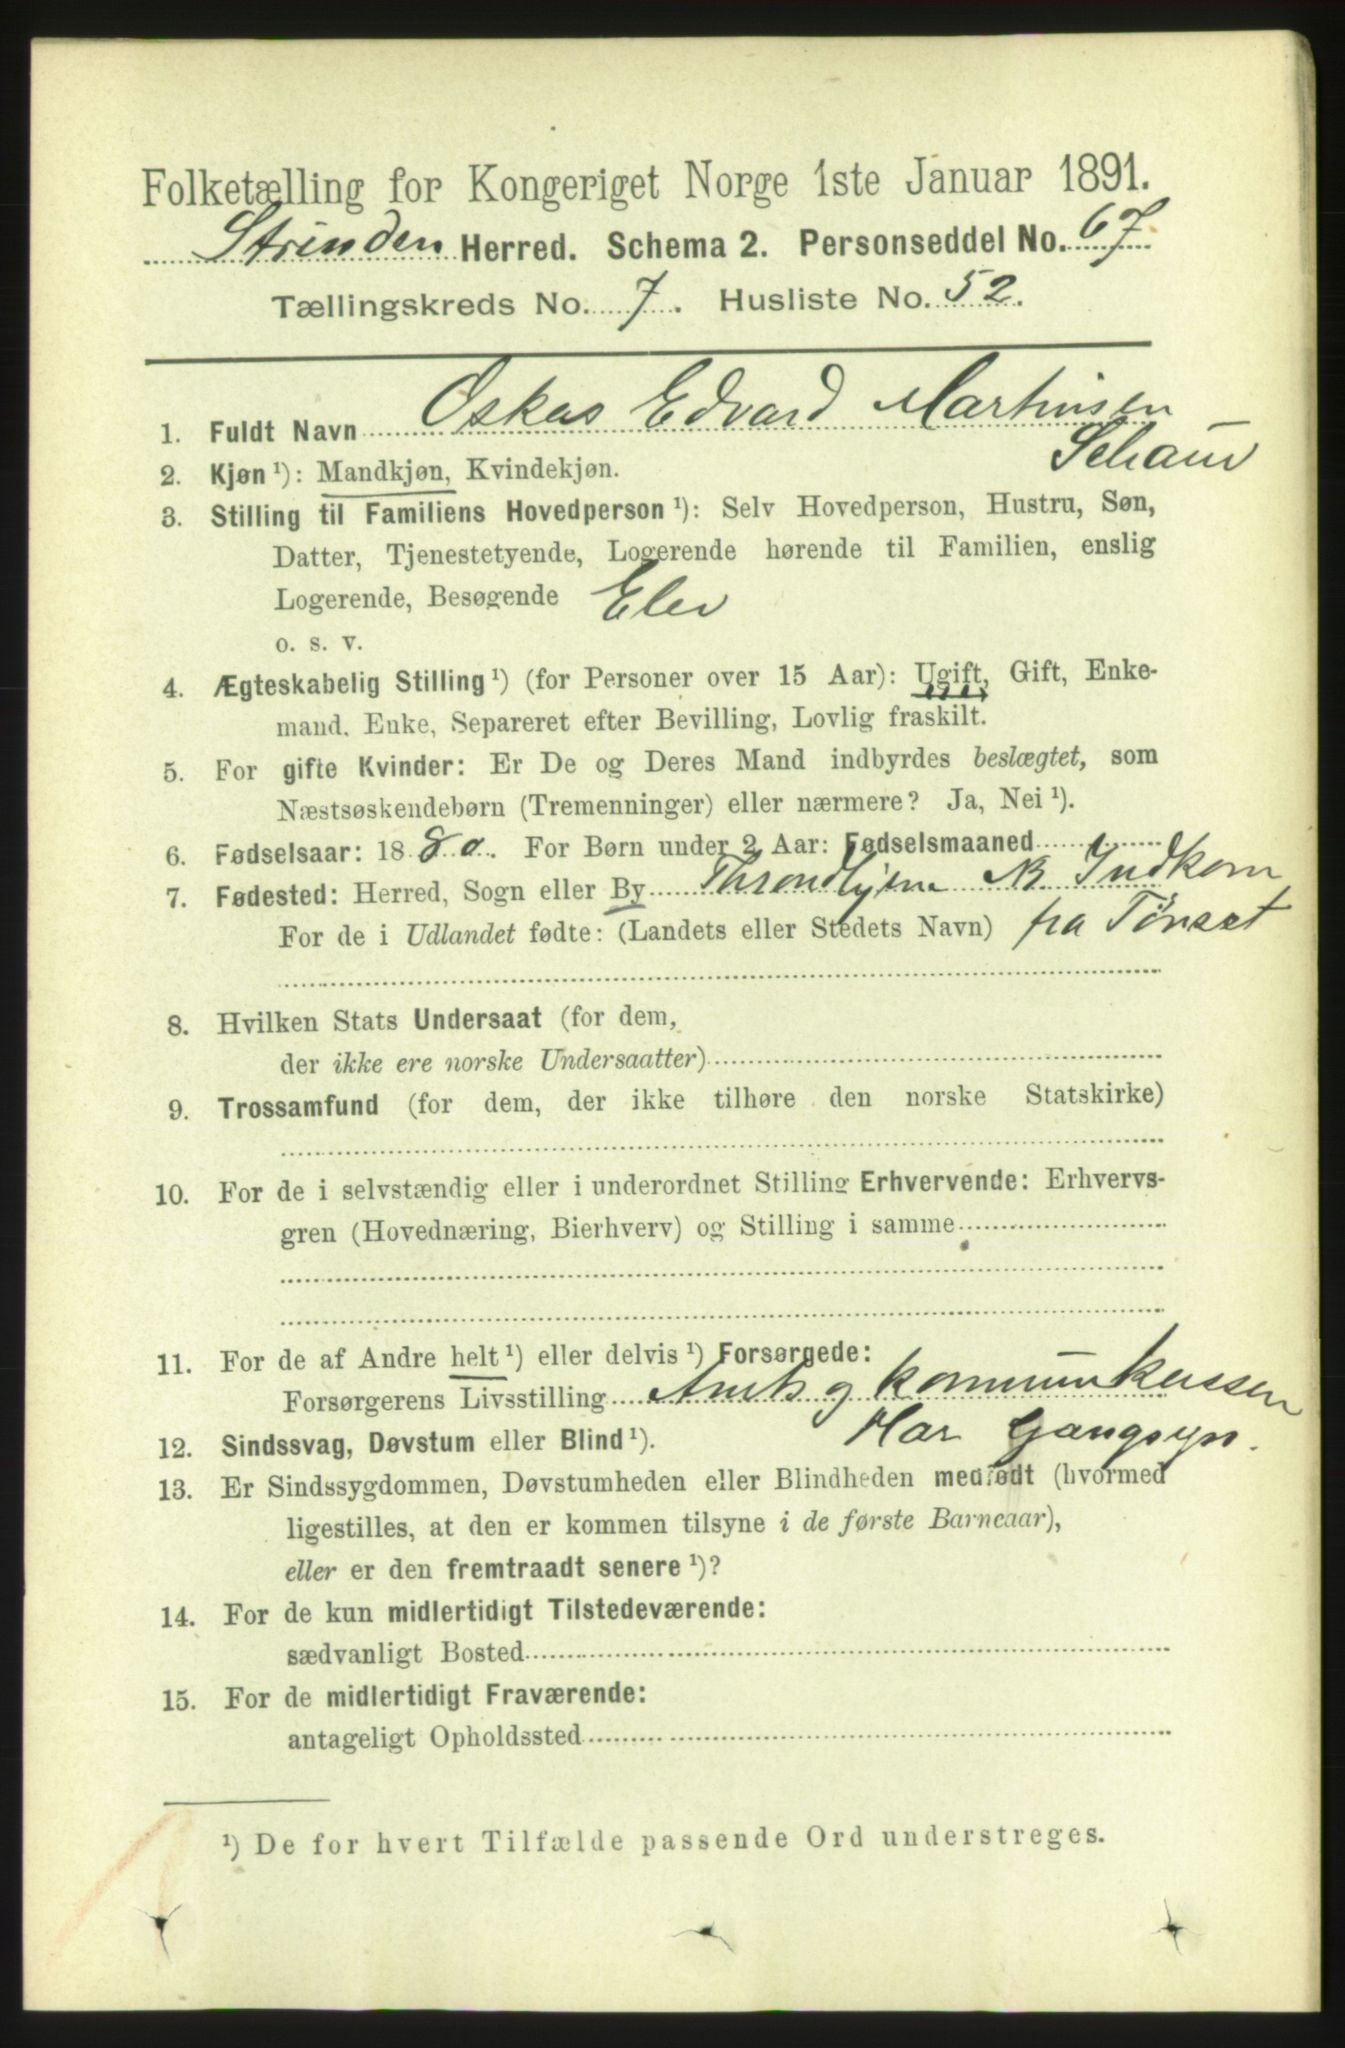 Folketælling for Kongeriget Norge 1ste Januar 1891.
Strinden Herred. Schema 2. Personseddel No. 67
Tællingskreds No. 7. Husliste No. 52.
1. Fuldt Navn Oskar Edvard Martinsen
Schaun
2. Kjøn ¹): Mandkjøn, Kvindekjøn.
3. Stilling til Familiens Hovedperson ¹): Selv Hovedperson, Hustru, Søn,
Datter, Tjenestetyende, Logerende hørende til Familien, enslig
Logerende, Besøgende Elev
o. s. v.
4. Ægteskabelig Stilling ¹) (for Personer over 15 Aar): Ugift, Gift, Enke-
mand, Enke, Separeret efter Bevilling, Lovlig fraskilt.
5. For gifte Kvinder: Er De og Deres Mand indbyrdes beslægtet, som
Næstsøskendebørn (Tremenninger) eller nærmere? Ja, Nei ¹).
6. Fødselsaar: 1880. For Børn under 2 Aar: Fødselsmaaned
7. Fødested: Herred, Sogn eller By Throndhjem NB. Indkom
For de i Udlandet fødte: (Landets eller Stedets Navn) fra Tønset
8. Hvilken Stats Undersaat (for dem,
der ikke ere norske Undersaatter)
9. Trossamfund (for dem, der ikke tilhøre den norske Statskirke)
10. For de i selvstændig eller i underordnet Stilling Erhvervende: Erhvervs-
gren (Hovednæring, Bierhverv) og Stilling i samme
11. For de af Andre helt ¹) eller delvis ¹) Forsørgede:
Forsørgerens Livsstilling Amts og kommunekassen
12. Sindssvag, Døvstum eller Blind ¹). Har Gangsyn.
13. Er Sindssygdommen, Døvstumheden eller Blindheden medfødt (hvormed
ligestilles, at den er kommen tilsyne i de første Barneaar),
eller er den fremtraadt senere ¹)?
14. For de kun midlertidigt Tilstedeværende:
sædvanligt Bosted
15. For de midlertidigt Fraværende:
antageligt Opholdssted
¹) De for hvert Tilfælde passende Ord understreges.